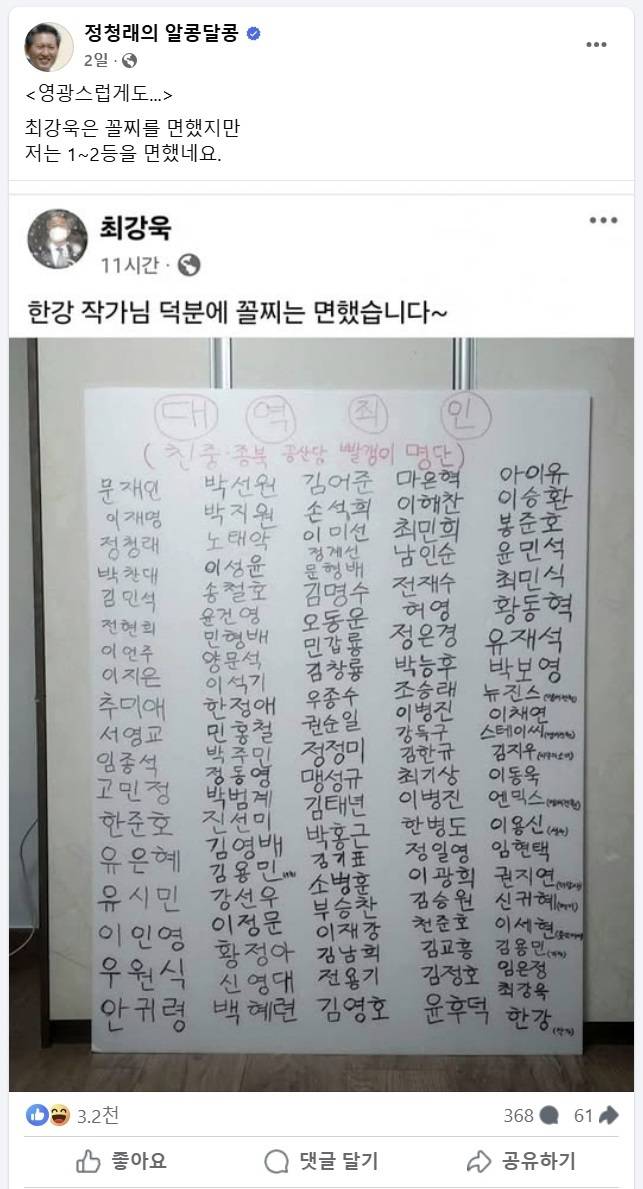 정청래의 알콩달콩
2일 ·
<영광스럽게도...>
최강욱은 꼴찌를 면했지만
저는 1~2등을 면했네요.
최강욱
11시간 ·
한강 작가님 덕분에 꼴찌는 면했습니다~
대 역 죄 인
(친중·종북 공산당 빨갱이 명단)
문재인
이재명
정청래
박찬대
김민석
전현희
이언주
이지은
추미애
서영교
임종석
고민정
한준호
유은혜
유시민
이인영
우원식
안귀령
박선원
박지원
노태악
이성윤
송철호
윤건영
민형배
양문석
이석기
한정애
민홍철
박주민
정동영
박범계
진선미
김영배
김용민
강선우
이정문
황정아
신영대
백혜련
김어준
손석희
이미선
정계선
문형배
김명수
오동운
민갑룡
김창룡
우종수
권순일
정정미
맹성규
김태년
박홍근
김기표
소병훈
부승찬
이재강
김남희
전용기
김영호
마은혁
이해찬
최민희
남인순
전재수
허영
정은경
박능후
조승래
이병진
강득구
김한규
최기상
이병진
한병도
정일영
이광희
김승원
천준호
김교흥
김정호
윤후덕
아이유
이승환
봉준호
윤민석
최민식
황동혁
유재석
박보영
뉴진스
이채연
스테이씨
김지우
이동욱
엔믹스
이용신
임현택
권지연
신귀혜
이세현
김용민
임은정
최강욱
한강 (작가)
3.2천
368
61
좋아요
댓글 달기
공유하기